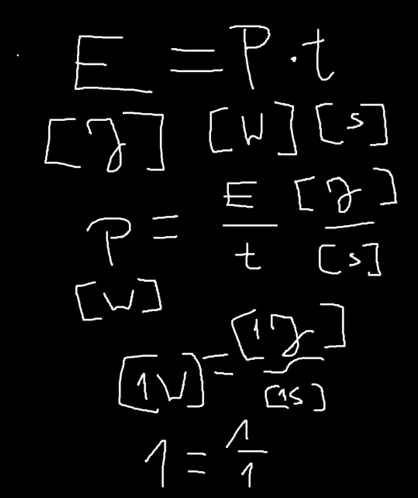 E = P · t
[J] [W] [s]
P = E/t [J]/[s]
[W]
[1W] = [1J]/[1s]
1 = 1/1